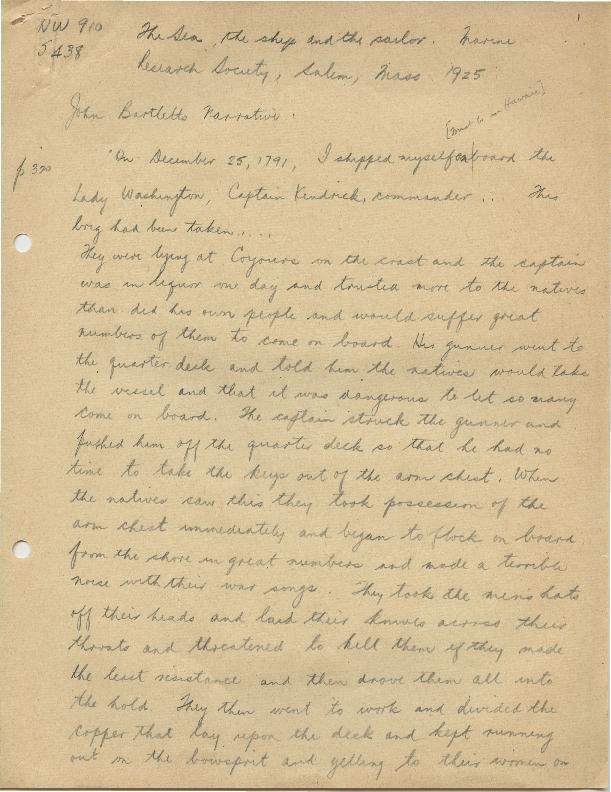 NW 910
5438
1
The Sea, the ship and the sailor. Marine
Research Society, Salem, Mass 1925
John Bartletts Narrative.
[must be in Hawaii]
p 320
"On December 25, 1791, I shipped myself on board the
Lady Washington, Captain Kendrick, commander... This
brig had been taken.....
They were lying at Coyours on the coast and the captain
was in liquor on day and trusted more to the natives
than did his own people and would suffer great
numbers of them to come on board. His gunner went to
the quarter deck and told him the natives would take
the vessel and that it was dangerous to let so many
come on board. The captain struck the gunner and
pushed him off the quarter deck so that he had no
time to take the keys out of the arm chest. When
the natives saw this they took possession of the
arm chest immediately and began to flock on board
from the shore in great numbers and made a terrible
noise with their war songs. They took the men's hats
off their heads and laid their knives across their
throats and threatened to kill them if they made
the least resistance and then drove them all into
the hold. They then went to work and divided the
copper that lay upon the deck and kept running
out on the bowsprit and yelling to their women on